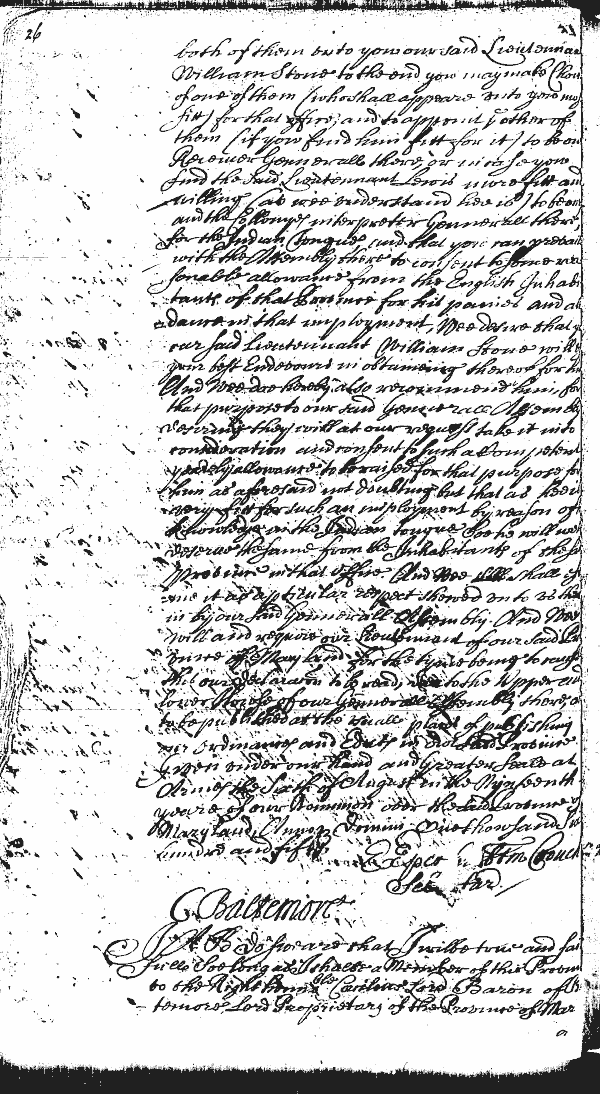 26
both of them unto you our said Lieutennant
William Stone to the end you may make Choi
of one of them (who shall appeare unto you mo
fitt) for that office, and to appoint ye other of
them (if you find him fitt for it) to be our
Receiver Generall there, or in case you
find the said Lieutennant Lewis more fitt and
willing (as wee understand hee is) to be our
and the Collonyes interpreter Gennerall there
for the Indian Tongue, and that you can prevail
with the Assembly there to consent to some rea
sonable allowance from the English Inhabi
tants of that Province for his paines and at
dance in that imployment, Wee desire that y
our said Lieutennant William Stone will
your best Endeavours in obtaineing thereof for hi
And Wee doe hereby also recommend him, for
that purpose to our said Generall Assembly
desireing they will at our request take it into
consideration and consent to such a Competent
yearely allowance to be raised for that purpose for
him as aforesaid not doubting but that as hee is
very fitt for such an imployment by reason of
knowledge in the Indian tongue Soe he will well
deserve the same from the Inhabitants of the sd
Province in that office. And Wee shall es
me it as a pticular respect shewed unto us the
in by our said Generall Assembly. And Wee
will and require our Lieutennant of our said Pr
vince of Mary land for the tyme being to cause
this our declaracon to be read, unto the Upper and
lower Howse of our Gennerall Assembly there, a
to be published at the usuall places of publishing
our Ordinances and Edicts in our said Province
Given under our Hand and Greater Seale at
Armes the Sixth of August in the Nynteenth
yeare of our Dominion over the said Province of
Mary land, Annoq Domini One thowsand Six
hundred and fifty
Tho Couch
C Baltemore
I A B Do sweare that I will be true and fai
full Soe long as I shalbe a Member of this Province
to the Right honnble Cecilius Lord Baron of B
temore Lord Proprietary of the Province of Mar